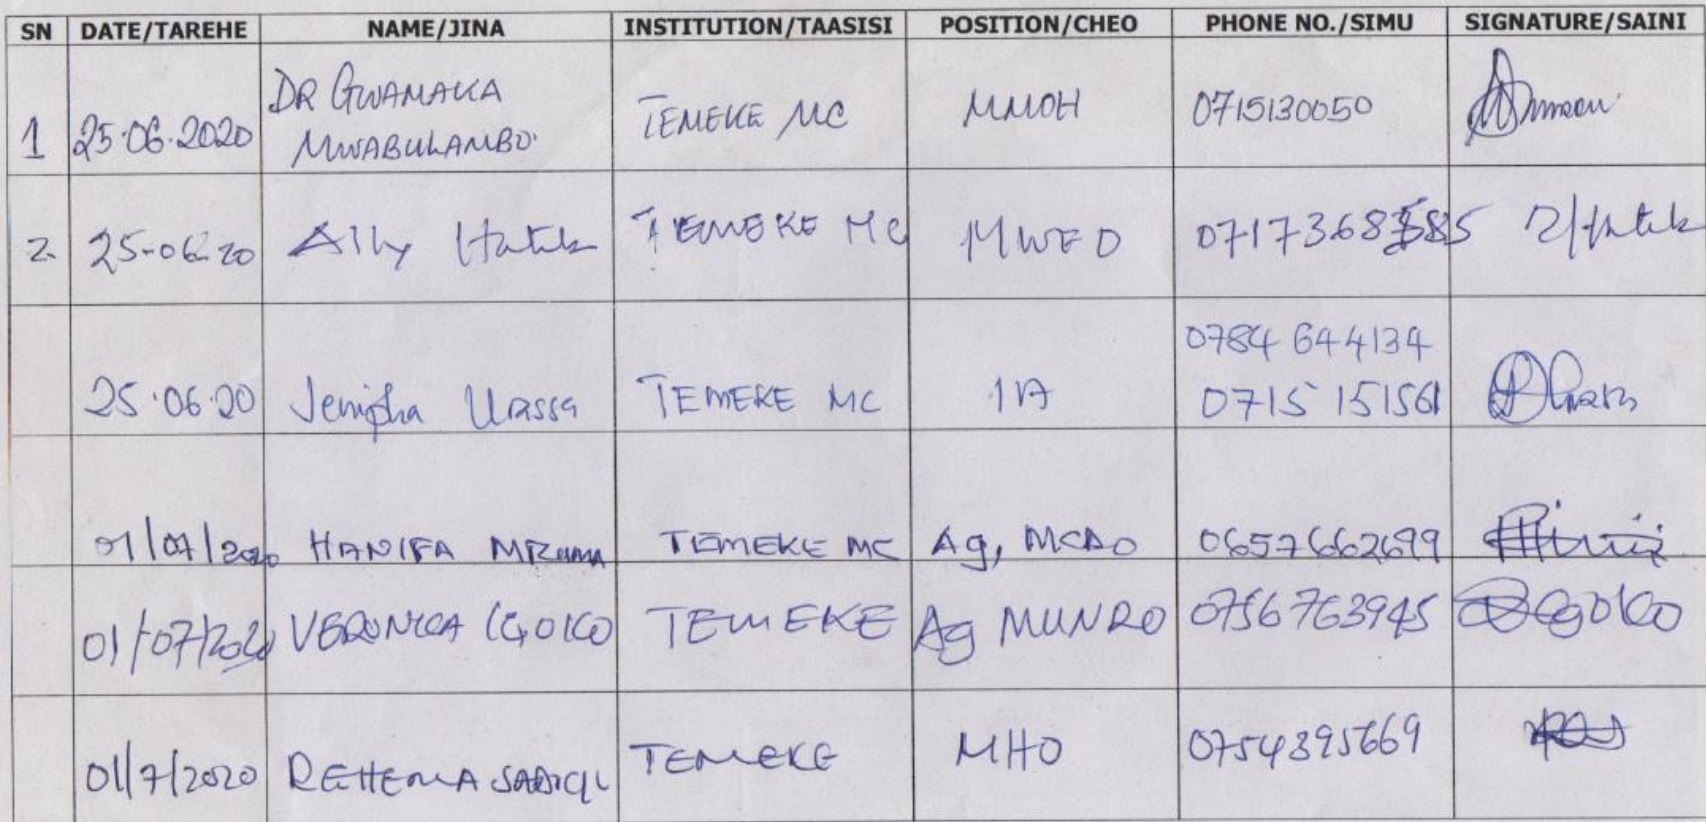 SN DATE/TAREHE NAME/JINA INSTITUTION/TAASISI POSITION/CHEO PHONE NO./SIMU SIGNATURE/SAINI
1 25.06.2020 DR GWAMAKA MWABULAMBO. TEMEKE MC MMOH 0715130050
2. 25-06-20 Ally Hatib TEMEKE MC MWEO
25.06.20 Jenipha Urassa TEMEKE MC IA 0784 644134
0715 151561
01/07/2020 HANIFA TEMEKE MC Ag, MCDO 0657662699
01/07/2020 VERONICA TEMEKE Ag 0756763945
01/7/2020 REHEMA SADICK TEMEKE MHO 0754395669